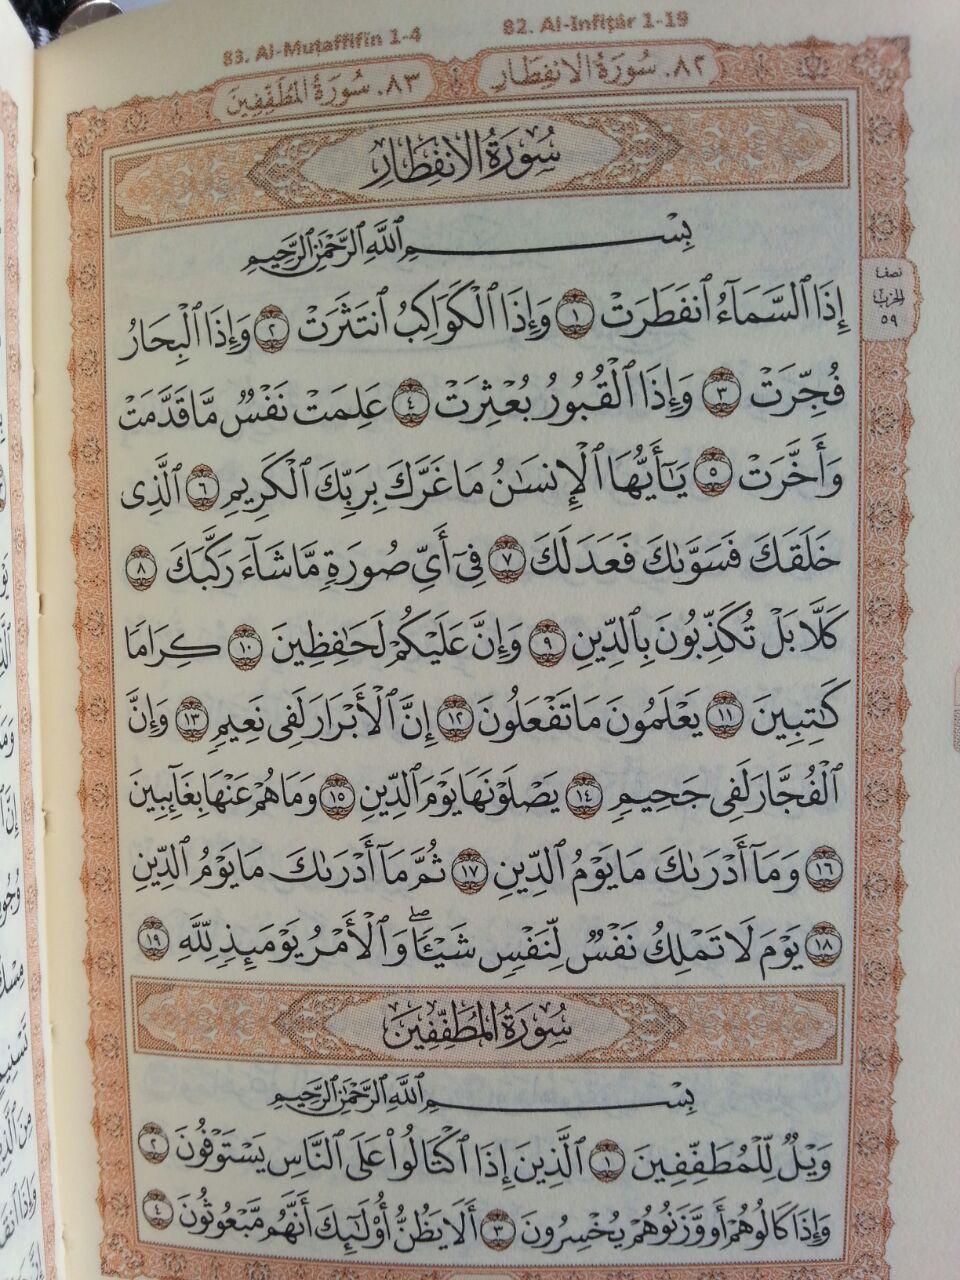 83. Al-Muṭaffifīn 1-4
82. Al-Infiṭār 1-19
٨٣. سُورَةُ المُطَفِّفِينَ
٨٢. سُورَةُ الانفِطَار
سُورَةُ الانفِطَارِ
بِسْمِ ٱللَّهِ ٱلرَّحْمَٰنِ ٱلرَّحِيمِ
إِذَا ٱلسَّمَآءُ ٱنفَطَرَتْ ١ وَإِذَا ٱلْكَوَاكِبُ ٱنتَثَرَتْ ٢ وَإِذَا ٱلْبِحَارُ
فُجِّرَتْ ٣ وَإِذَا ٱلْقُبُورُ بُعْثِرَتْ ٤ عَلِمَتْ نَفْسٌ مَّا قَدَّمَتْ
وَأَخَّرَتْ ٥ يَٰٓأَيُّهَا ٱلْإِنسَٰنُ مَا غَرَّكَ بِرَبِّكَ ٱلْكَرِيمِ ٦ ٱلَّذِى
خَلَقَكَ فَسَوَّىٰكَ فَعَدَلَكَ ٧ فِىٓ أَىِّ صُورَةٍ مَّا شَآءَ رَكَّبَكَ ٨
كَلَّا بَلْ تُكَذِّبُونَ بِٱلدِّينِ ٩ وَإِنَّ عَلَيْكُمْ لَحَٰفِظِينَ ١٠ كِرَامًا
كَٰتِبِينَ ١١ يَعْلَمُونَ مَا تَفْعَلُونَ ١٢ إِنَّ ٱلْأَبْرَارَ لَفِى نَعِيمٍ ١٣ وَإِنَّ
ٱلْفُجَّارَ لَفِى جَحِيمٍ ١٤ يَصْلَوْنَهَا يَوْمَ ٱلدِّينِ ١٥ وَمَا هُمْ عَنْهَا بِغَآئِبِينَ
١٦ وَمَآ أَدْرَىٰكَ مَا يَوْمُ ٱلدِّينِ ١٧ ثُمَّ مَآ أَدْرَىٰكَ مَا يَوْمُ ٱلدِّينِ
١٨ يَوْمَ لَا تَمْلِكُ نَفْسٌ لِّنَفْسٍ شَيْـًٔا ۖ وَٱلْأَمْرُ يَوْمَئِذٍ لِّلَّهِ ١٩
نصف
الحزب
٥٩
سُورَةُ المُطَفِّفِينَ
بِسْمِ ٱللَّهِ ٱلرَّحْمَٰنِ ٱلرَّحِيمِ
وَيْلٌ لِّلْمُطَفِّفِينَ ١ ٱلَّذِينَ إِذَا ٱكْتَالُوا۟ عَلَى ٱلنَّاسِ يَسْتَوْفُونَ ٢
وَإِذَا كَالُوهُمْ أَو وَّزَنُوهُمْ يُخْسِرُونَ ٣ أَلَا يَظُنُّ أُو۟لَٰٓئِكَ أَنَّهُم مَّبْعُوثُونَ ٤